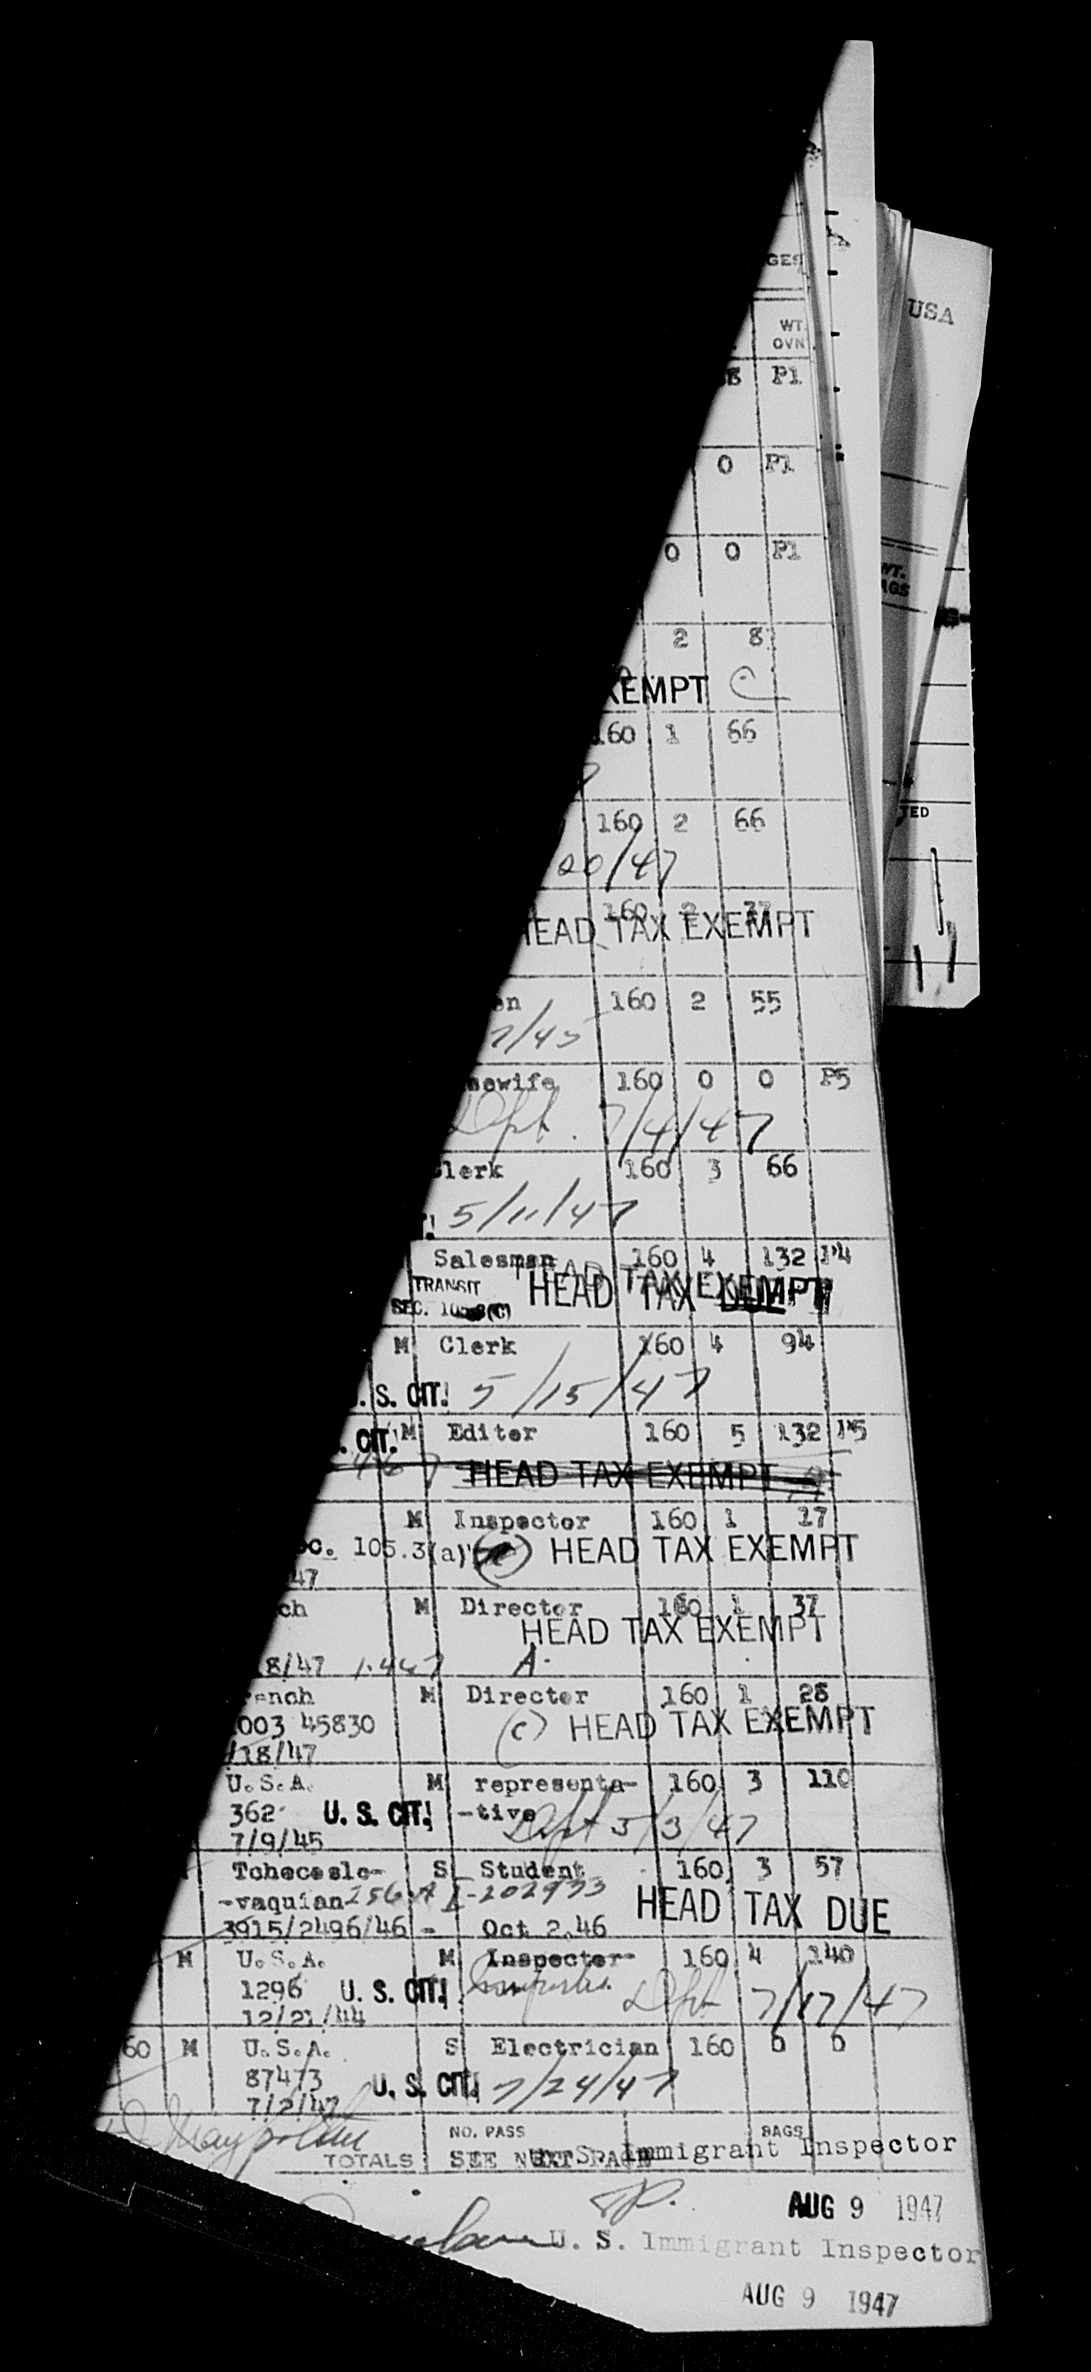 GES
USA
WT.
OVN
P1
0 P1
0 0 P1
WT.
AGS
2 8
EXEMPT C
160 1 66
TED
160 2 66
20/47
160 2 37
HEAD TAX EXEMPT
en 160 2 55
7/45
sewife 160 0 0 P5
Dpt. 7/4/47
Clerk 160 3 66
T. 5/11/47
Salesman 160 4 132 P4
TRANSIT HEAD TAX EXEMPT
SEC. HEAD TAX DUE
M Clerk 160 4 94
. S. CIT. 5/15/47
M Editor 160 5 132 P5
. CIT.
HEAD TAX EXEMPT
M Inspector 160 1 17
ec. 105.3(a) HEAD TAX EXEMPT
47
ch M Director 160 1 37
HEAD TAX EXEMPT
8/47 A.
rench M Director 160 1 28
003 45830 (C) HEAD TAX EXEMPT
/18/47
U.S.A. M representa- 160 3 110
362 U. S. CIT. -tive Dpt 5/3/47
7/9/45
Tchecoslo- S Student 160 3 57
-vaquian 256 A I-202933 HEAD TAX DUE
3915/2496/46 - Oct 2.46
M U.S.A. M Inspector 160 4 140
1296 U. S. CIT. Dpt 7/17/47
12/21/44
60 M U.S.A. S Electrician 160 0 0
87473 U. S. CIT. 7/24/47
7/2/47
NO. PASS BAGS
TOTALS SEE NEXT PAGE U. S. Immigrant Inspector
AUG 9 1947
U. S. Immigrant Inspector
AUG 9 1947